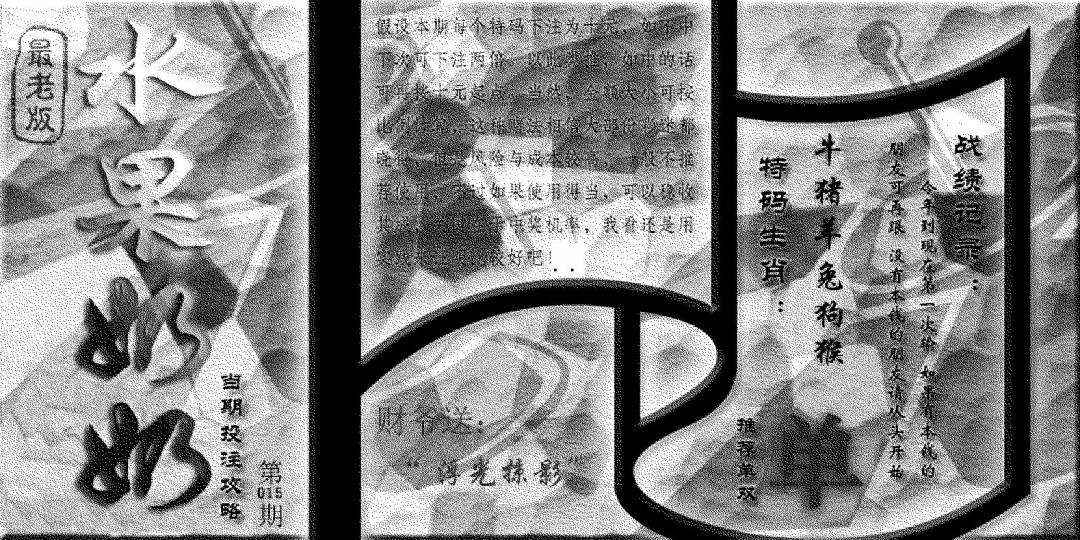 最老版
水果奶奶
当期投注攻略
第
015
期
假设本期每个特码下注为十元，如不中
下次可下注两倍，以此类推，如中的话
可再投十元起点。当然，金额大小可按
比例
这种
法相信大部份彩迷都
晓得，但是风险与成本较高，一般不推
荐使用，不过如果使用得当，可以稳收
中奖机率，我看还是用
比较好吧！
财爷送：
“浮光掠影”
战绩记录：
今年到现在第一次输 如果有本钱的
朋友可再跟 没有本钱的朋友请从头开始
牛猪羊兔狗猴
特码生肖：
单
推荐单双